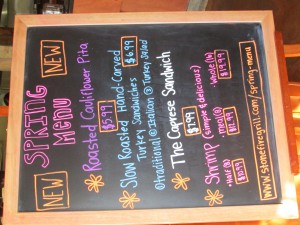 NEW SPRING MENU NEW
Roasted Cauliflower Pita
$5.99
Slow Roasted Hand-Carved
Turkey Sandwiches $6.99
Traditional Italian Turkey Salad
The Caprese Sandwich
$7.99
Shrimp (simple & delicious)
Half (8) $10.99
meal $11.99
Whole (16) $19.99
www.stonefiregrill.com/spring-menu